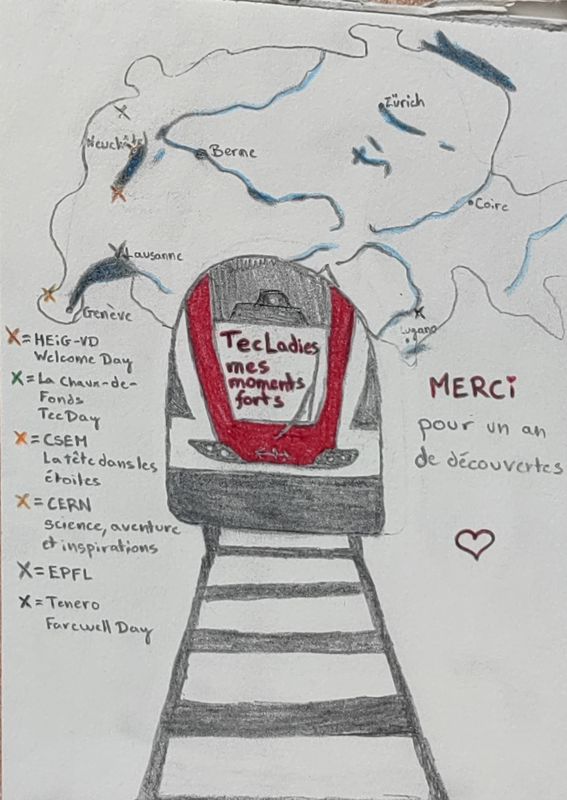 Zürich
Neuchâtel
Berne
Coire
Lausanne
Genève
Lugano
TecLadies
mes
moments
forts
X = HEiG-VD
Welcome Day
X = La Chaux-de-
Fonds
TecDay
X = CSEM
La tête dans les
étoiles
X = CERN
science, aventure
et inspirations
X = EPFL
X = Tenero
Farewell Day
MERCi
pour un an
de découvertes